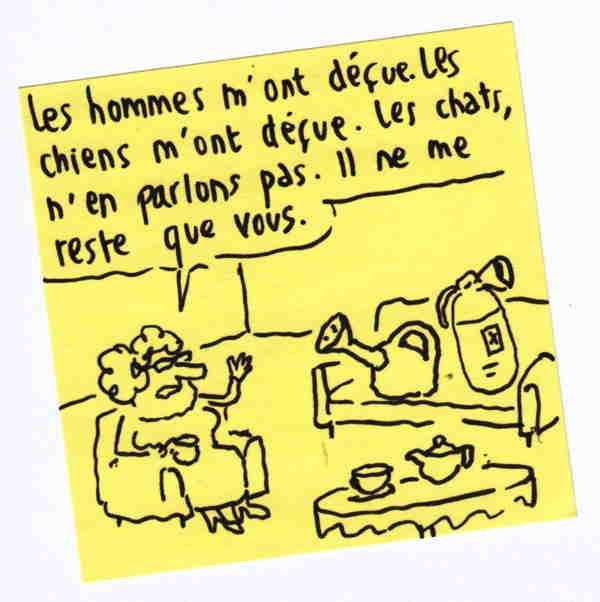 Les hommes m'ont déçue. Les
chiens m'ont déçue. Les chats,
n'en parlons pas. Il ne me
reste que vous.